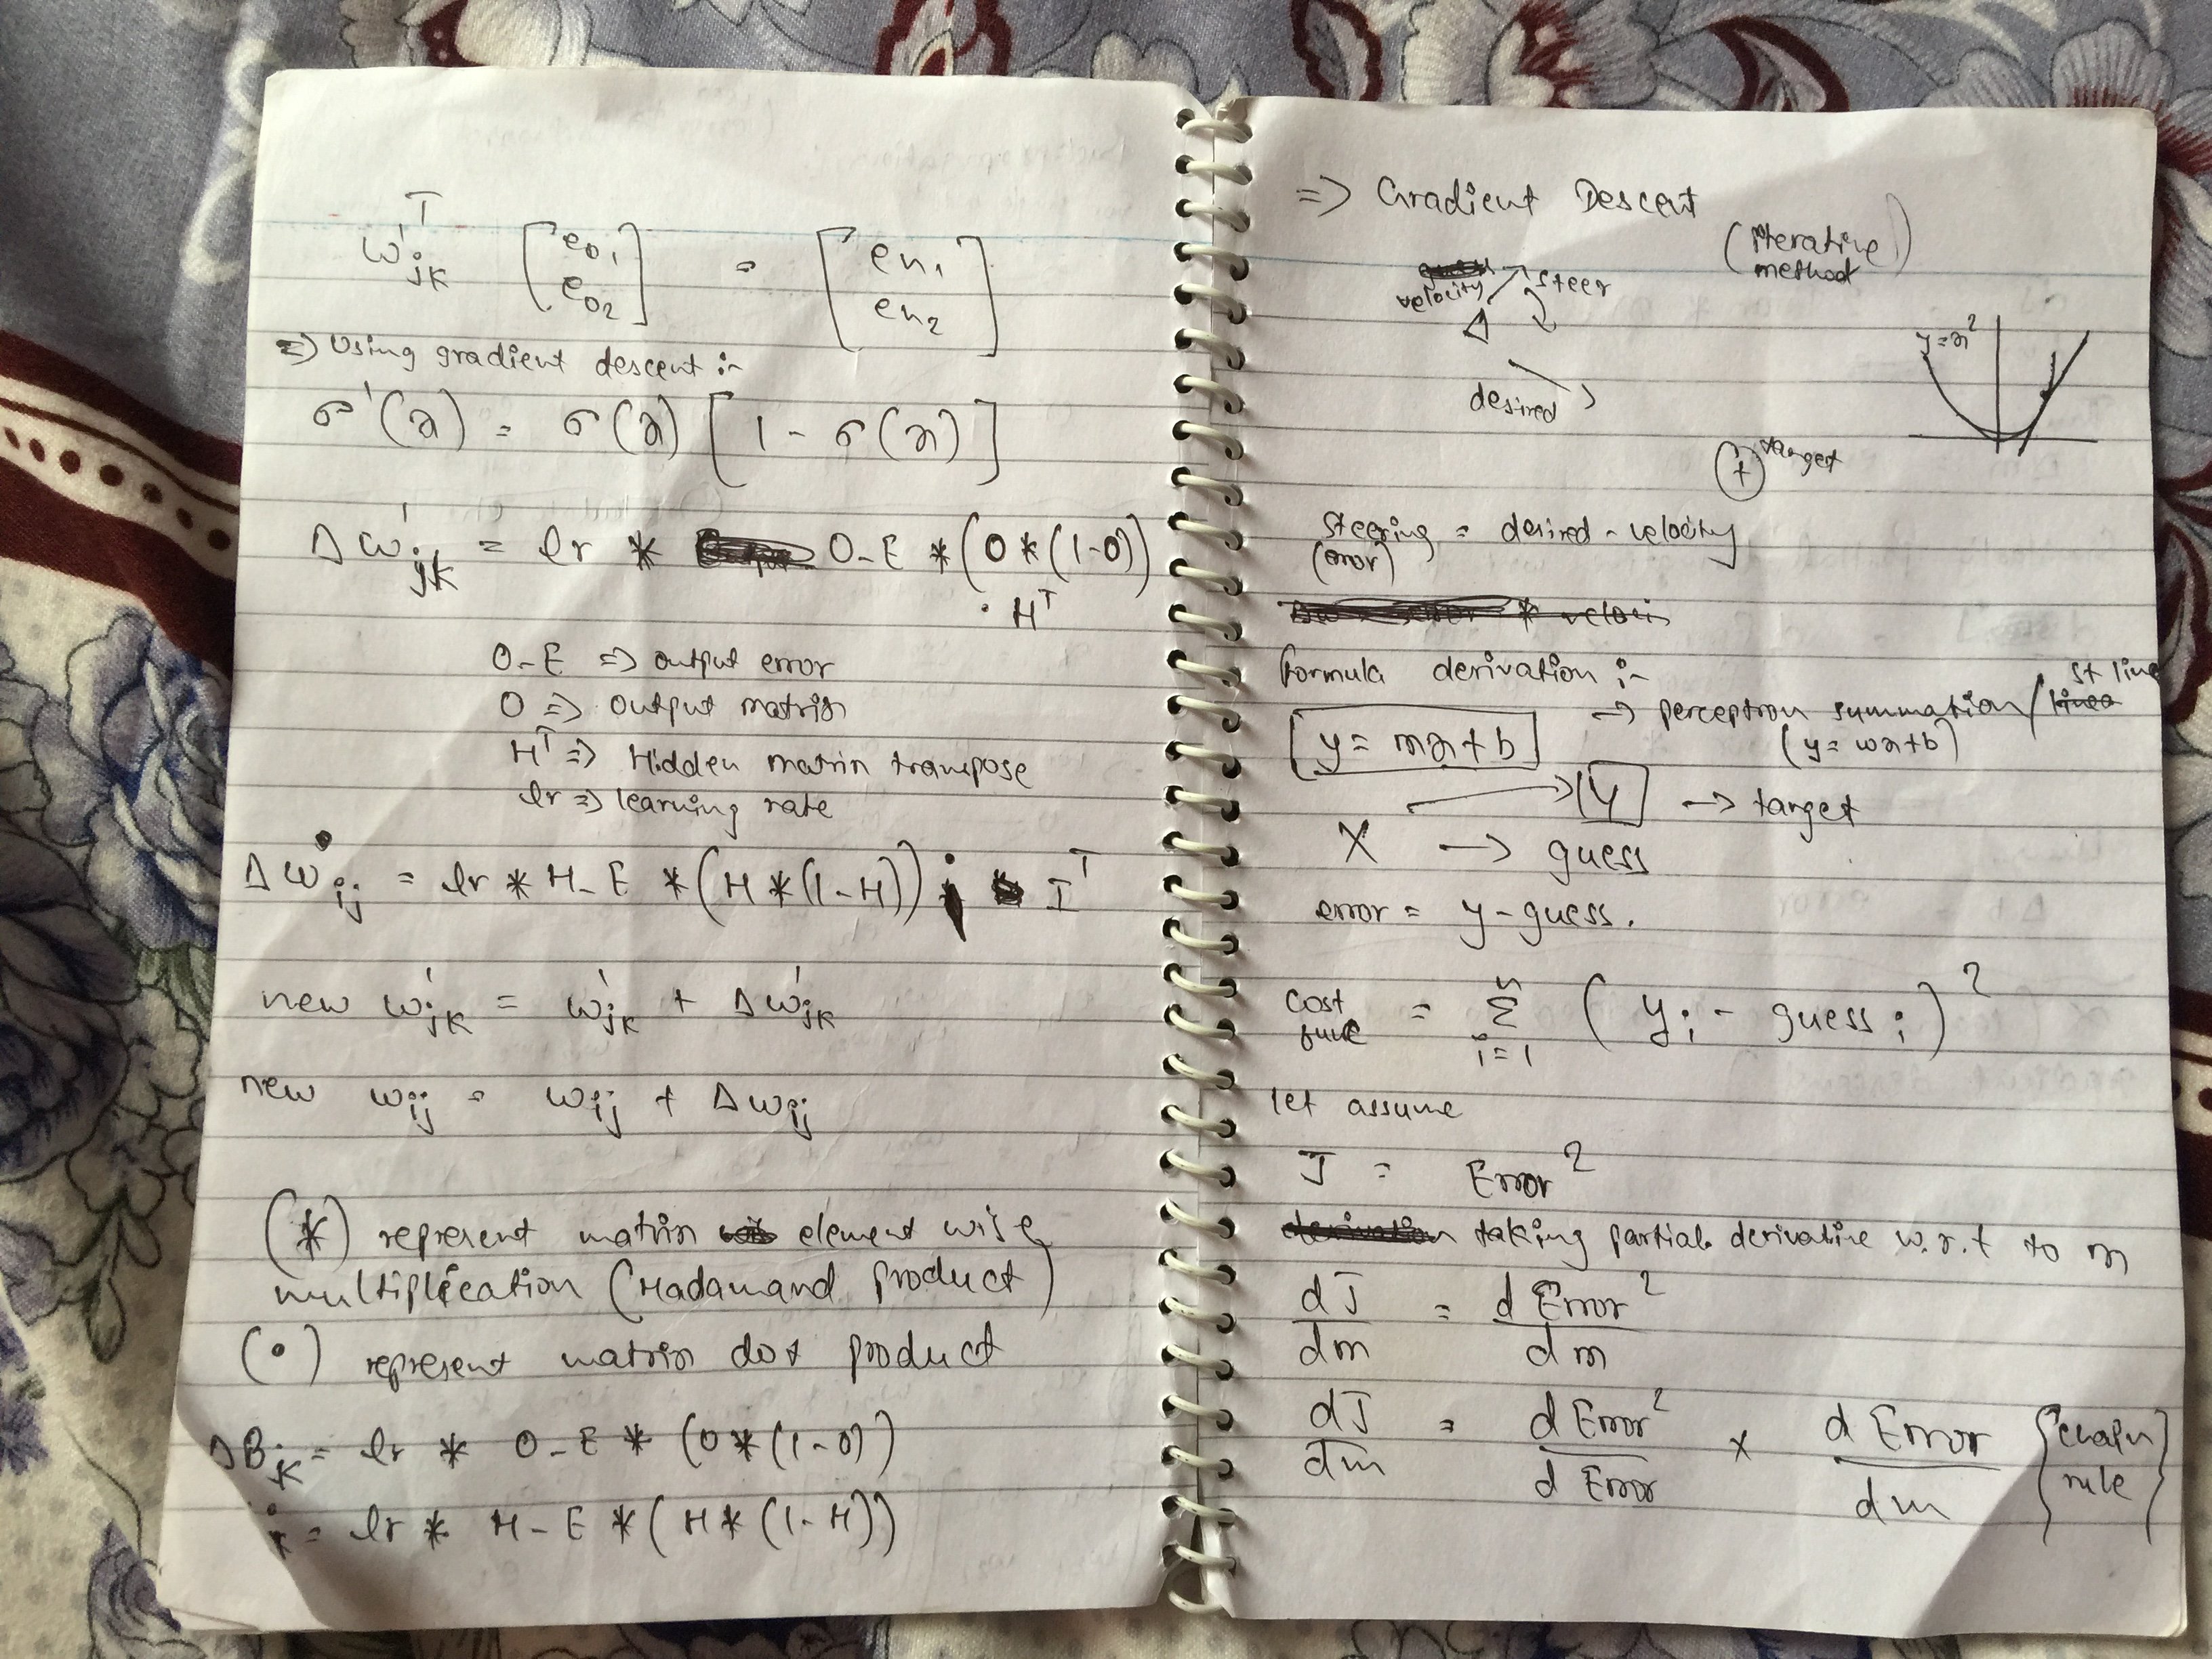 w'ᵀjk [e01 e02] = [en1 en2]
=) Using gradient descent :-
σ'(x) = σ(x) [1 - σ(x)]
Δw'jk = lr * O-E * (O*(1-O))
· Hᵀ
O-E => output error
O => output matrix
Hᵀ => Hidden matrix transpose
lr => learning rate
Δwij = lr * H-E * (H*(1-H)) · Iᵀ
new w'jk = w'jk + Δw'jk
new wij = wij + Δwij
(*) represent matrix element wise
multiplication (Hadamand product)
(•) represent matrix dot product
ΔBjk = lr * O-E * (O*(1-O))
= lr * H-E * (H*(1-H))
=> Gradient Descent
(iterative
method)
velocity
steer
desired
target
y=x²
steering = desired - velocity
(error)
formula derivation :-
y = mx+b -> perceptron summation / st line
(y = wx+b)
y -> target
X -> guess
error = y-guess.
cost func = Σ i=1 n (yi - guess i)²
let assume
J = Error²
taking partial derivative w.r.t to m
dJ/dm = d Error²/dm
dJ/dm = d Error²/d Error × d Error/dm {chain rule}